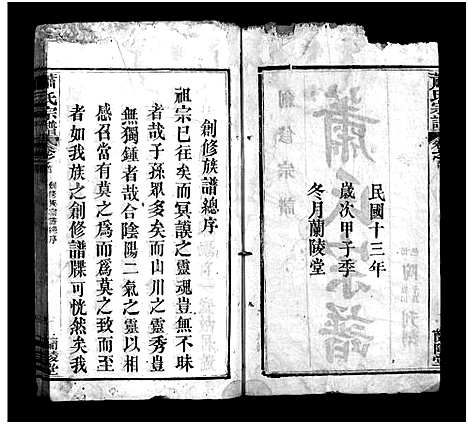 蕭氏宗譜
民國十三年
歲次甲子季
冬月蘭陵堂
創修宗譜
蕭氏宗譜
創修族譜總序
祖宗已往矣而冥漠之靈魂豈無不昧
者哉子孫眾多矣而山川之靈秀豈
無獨鍾者哉合陰陽二氣之靈以相
感召當有莫之為而為莫之致而至
者如我族之創修譜牒可恍然矣我
蕭氏宗譜
創修宗譜總序
蘭陵堂